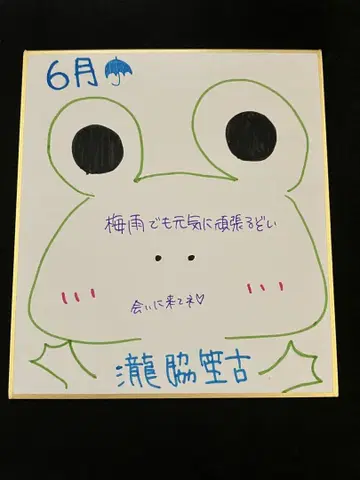 6月☂
梅雨でも元気に頑張るどい
会いに来てネ♡
瀧脇笙古